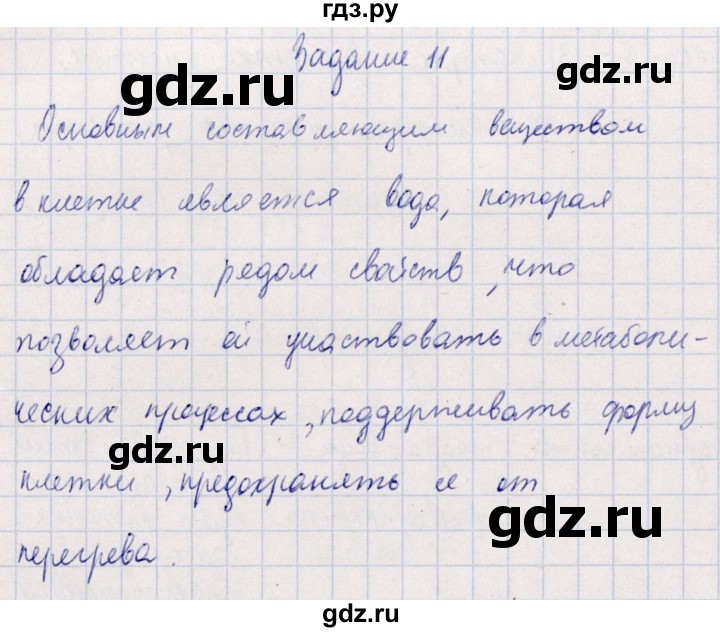 гдз.ру
Задание 11
gdz.ru
gdz.ru
Основным составляющим веществом
в клетке является вода, которая
обладает рядом свойств, что
gdz.ru
позволяет ей участвовать в метаболи-
ческих процессах, поддерживать форму
gdz.ru
клетки, предохранять ее от
gdz.ru
перегрева.
gdz.ru